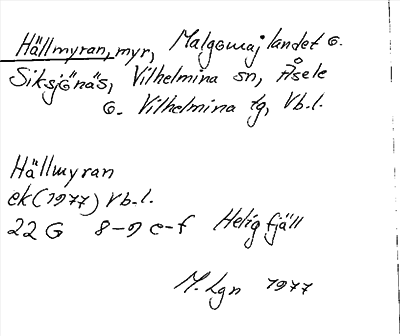 Hällmyran, myr, Malgomajlandet o.
Siksjönäs, Vilhelmina sn, Åsele
o. Vilhelmina tg, Vb.l.
Hällmyran
ek (1977) Vb.l.
22 G 8-9 e-f Heligfjäll
M. Lgn 1977